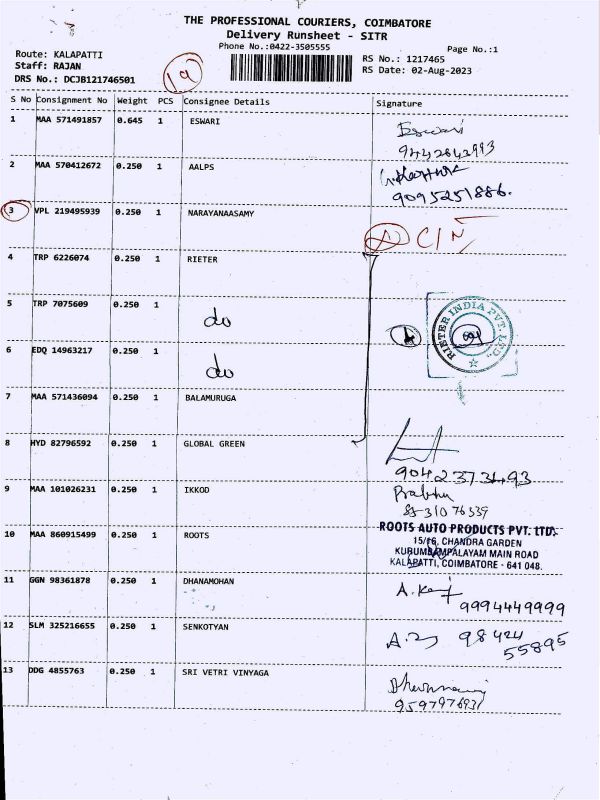 THE PROFESSIONAL COURIERS, COIMBATORE
Delivery Runsheet - SITR
Phone No.:0422-3505555
Page No.:1
Route: KALAPATTI
Staff: RAJAN
DRS No.: DCJB121746501
RS No.: 1217465
RS Date: 02-Aug-2023
19
S No Consignment No Weight PCS Consignee Details Signature
1 MAA 571491857 0.645 1 ESWARI Eswari
9442842993
2 MAA 570412672 0.250 1 AALPS
9095251886.
3 VPL 219495939 0.250 1 NARAYANAASAMY C/N
4 TRP 6226074 0.250 1 RIETER
5 TRP 7075609 0.250 1 do
RIETER INDIA PVT. LTD.
6 EDQ 14963217 0.250 1 do
7 MAA 571436094 0.250 1 BALAMURUGA
8 HYD 82796592 0.250 1 GLOBAL GREEN
9042373493
9 MAA 101026231 0.250 1 IKKOD Prabhu
10 MAA 860915499 0.250 1 ROOTS
ROOTS AUTO PRODUCTS PVT. LTD.
15/16, CHANDRA GARDEN
KURUMBAMPALAYAM MAIN ROAD
KALAPATTI, COIMBATORE - 641 048.
11 GGN 98361878 0.250 1 DHANAMOHAN
9994449999
12 SLM 325216655 0.250 1 SENKOTYAN 98424
55895
13 DDG 4855763 0.250 1 SRI VETRI VINYAGA